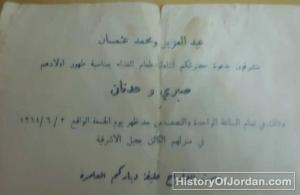 عبد العزيز ومحمد عثمان
يتشرفون بدعوة حضرتكم لتناول طعام الغداء بمناسبة طهور اولادهم
صبري و عدنان
وذلك في تمام الساعة الواحدة والنصف من بعد ظهر يوم الجمعة الواقع ٢/٦/١٩٦١
في منزلهم الكائن بجبل الاشرفية
دياركم العامرة
HistoryOfJordan.com